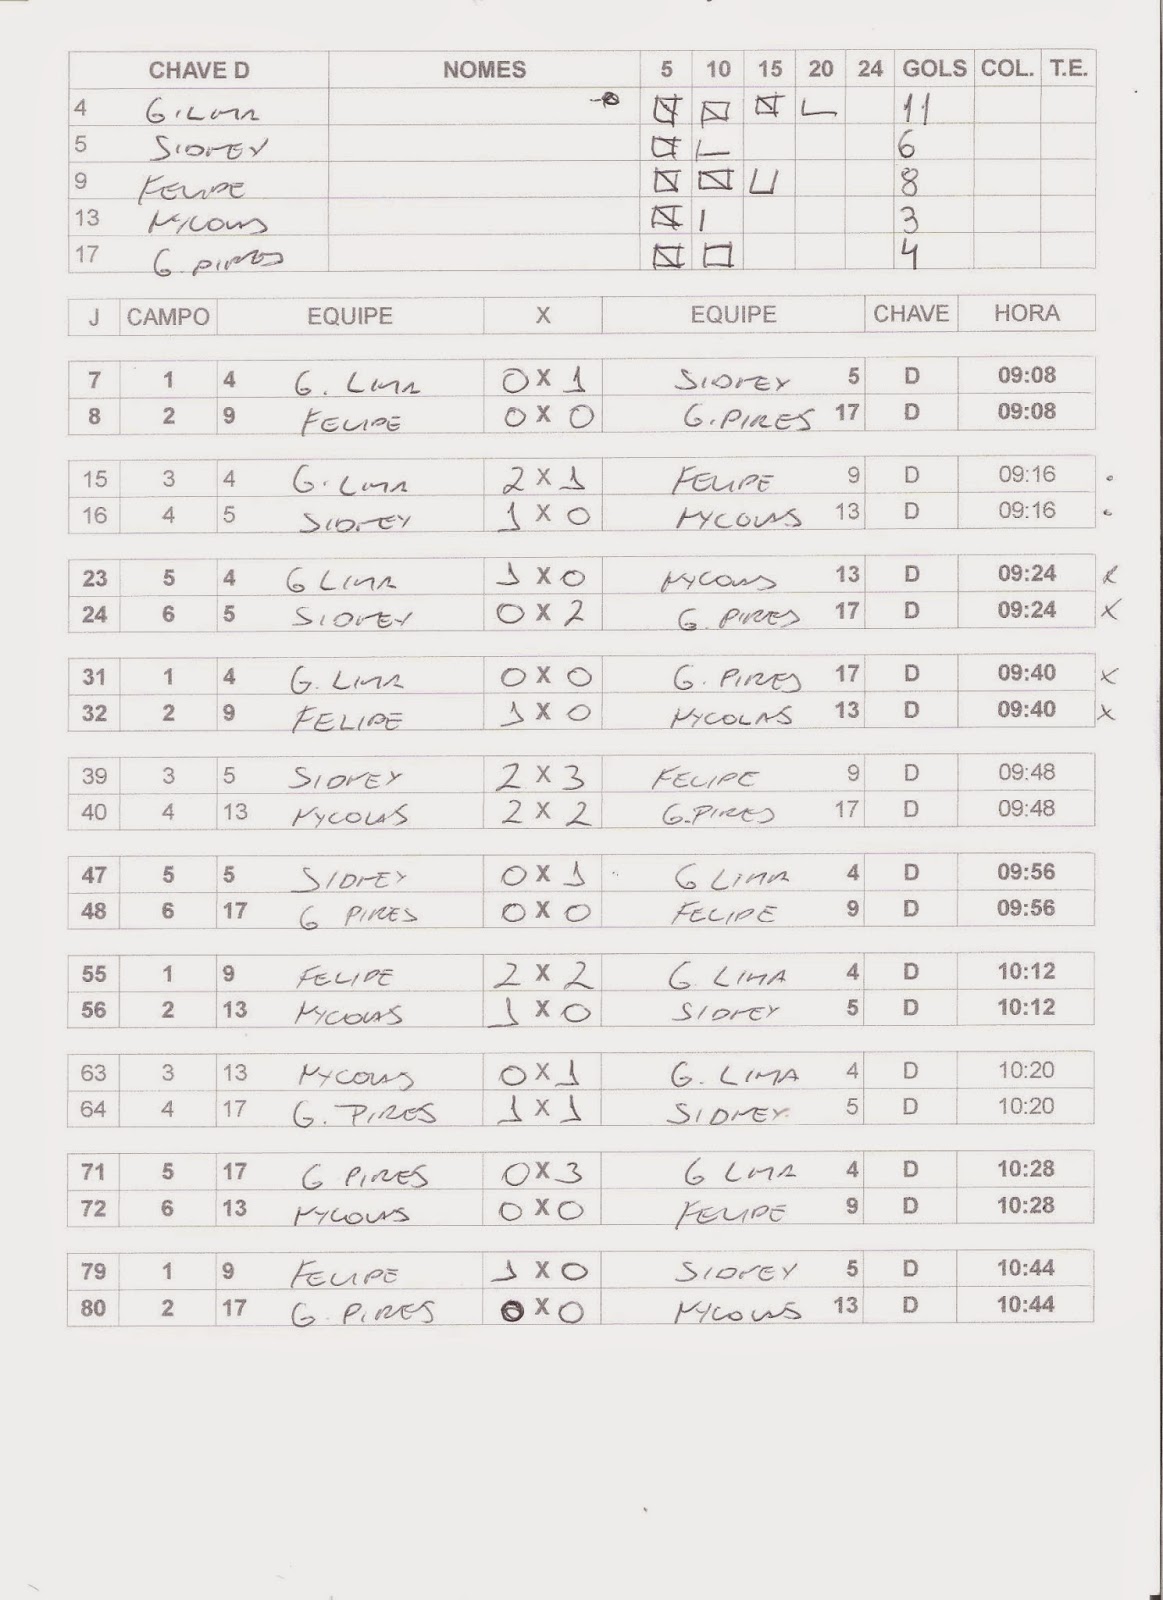 CHAVE D NOMES 5 10 15 20 24 GOLS COL. T.E.
4 G.LIMA 11
5 SIDNEY 6
9 FELIPE 8
13 NYCOLAS 3
17 G. PIRES 4
J CAMPO EQUIPE X EQUIPE CHAVE HORA
7 1 4 G. LIMA 0 X 1 SIDNEY 5 D 09:08
8 2 9 FELIPE 0 X 0 G.PIRES 17 D 09:08
15 3 4 G. LIMA 2 X 1 FELIPE 9 D 09:16
16 4 5 SIDNEY 1 X 0 NYCOLAS 13 D 09:16
23 5 4 G LIMA 1 X 0 NYCOLAS 13 D 09:24 X
24 6 5 SIDNEY 0 X 2 G. PIRES 17 D 09:24 X
31 1 4 G. LIMA 0 X 0 G. PIRES 17 D 09:40 X
32 2 9 FELIPE 1 X 0 NYCOLAS 13 D 09:40 X
39 3 5 SIDNEY 2 X 3 FELIPE 9 D 09:48
40 4 13 NYCOLAS 2 X 2 G.PIRES 17 D 09:48
47 5 5 SIDNEY 0 X 1 G LIMA 4 D 09:56
48 6 17 G PIRES 0 X 0 FELIPE 9 D 09:56
55 1 9 FELIPE 2 X 2 G. LIMA 4 D 10:12
56 2 13 NYCOLAS 1 X 0 SIDNEY 5 D 10:12
63 3 13 NYCOLAS 0 X 1 G. LIMA 4 D 10:20
64 4 17 G. PIRES 1 X 1 SIDNEY 5 D 10:20
71 5 17 G PIRES 0 X 3 G LIMA 4 D 10:28
72 6 13 NYCOLAS 0 X 0 FELIPE 9 D 10:28
79 1 9 FELIPE 1 X 0 SIDNEY 5 D 10:44
80 2 17 G. PIRES 0 X 0 NYCOLAS 13 D 10:44